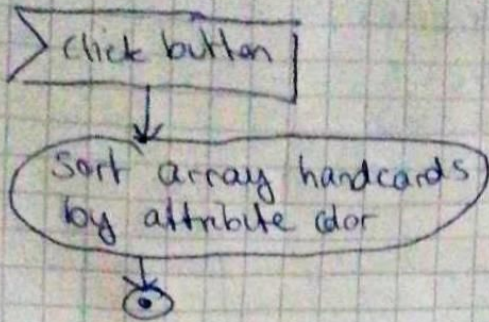 click button
Sort array handcards
by attribute color